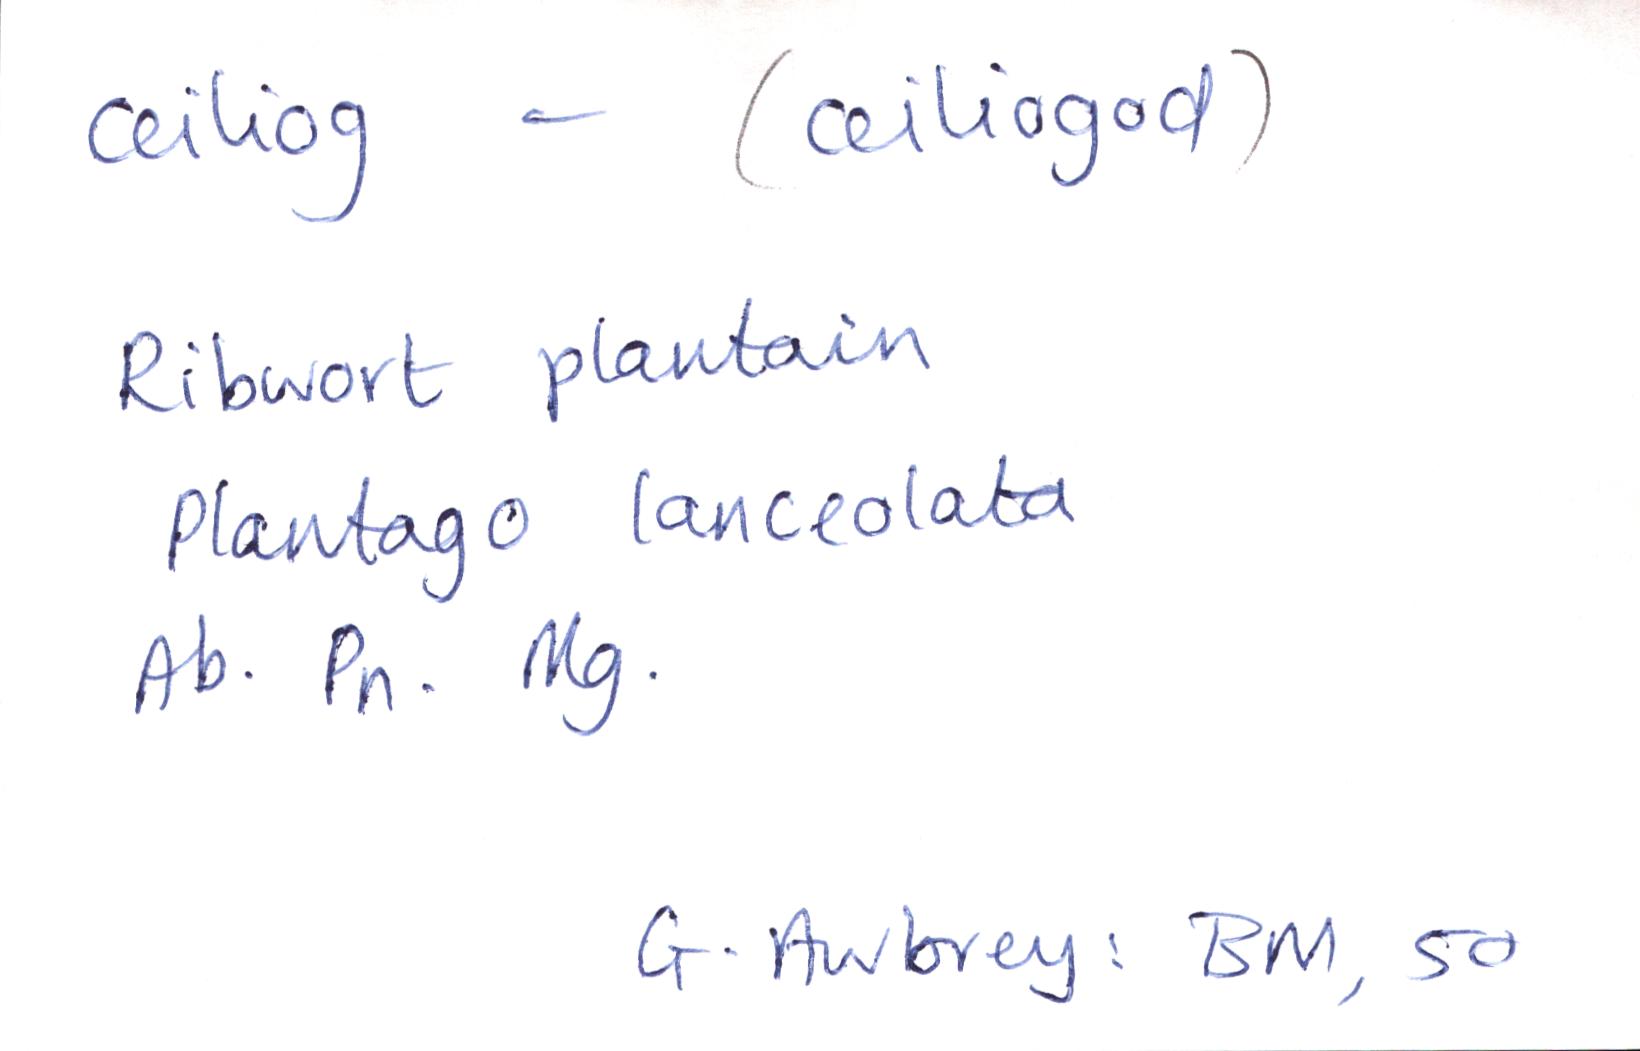 ceiliog – (ceiliogod)
Ribwort plantain
Plantago lanceolata
Ab. Pn. Mg.
G. Awbrey: BM, 50